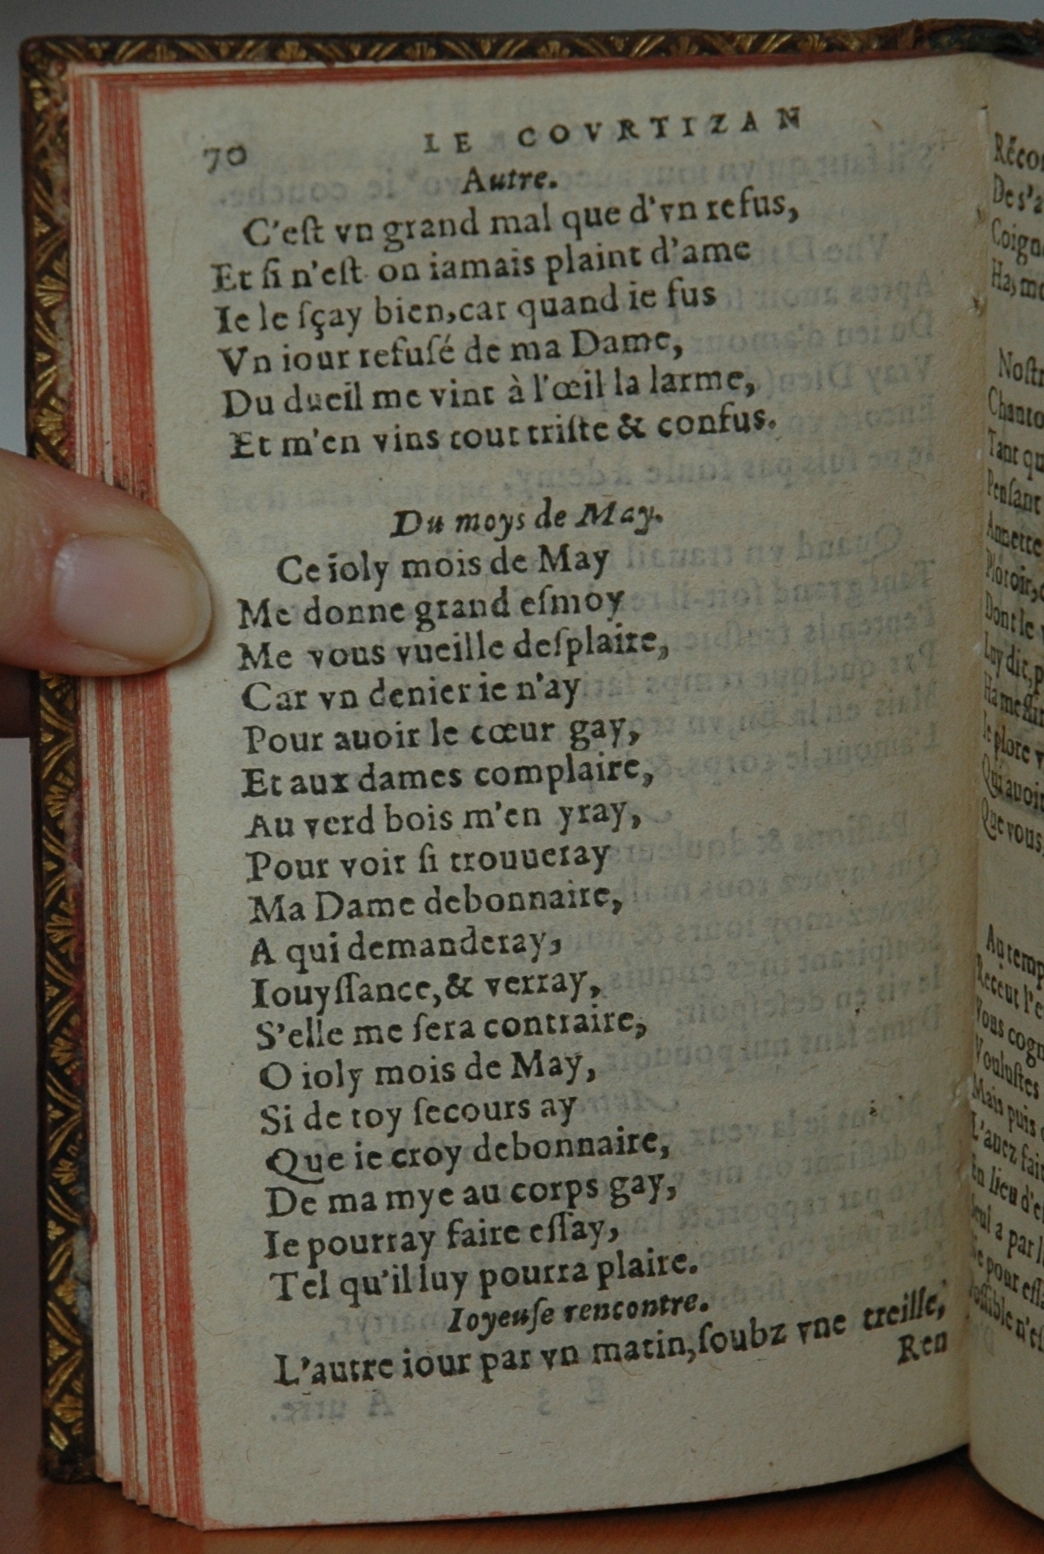 70 LE COVRTIZAN
Autre.
C'eſt vn grand mal que d'vn refus,
Et ſi n'eſt on iamais plaint d'ame
Ie le ſçay bien,car quand ie fus
Vn iour refuſé de ma Dame,
Du dueil me vint à l'œil la larme,
Et m'en vins tout triſte & confus.
Du moys de May.
Ce ioly mois de May
Me donne grand eſmoy
Me vous vueille deſplaire,
Car vn denier ie n'ay
Pour auoir le cœur gay,
Et aux dames complaire,
Au verd bois m'en yray,
Pour voir ſi trouueray
Ma Dame debonnaire,
A qui demanderay,
Iouyſſance,& verray,
S'elle me ſera contraire,
O ioly mois de May,
Si de toy ſecours ay
Que ie croy debonnaire,
De ma mye au corps gay,
Ie pourray faire eſſay,
Tel qu'il luy pourra plaire.
Ioyeuſe rencontre.
L'autre iour par vn matin,ſoubz vne treille,
Ren
De s'a
Coign
Noſtr
Chanto
Tant qu
Penſant
Annette
Dont le v
Luy dit,p
Ie plore v
Qui auoit
Que vous
Au temp
Receut l'e
Vous cogn
Vouluſtes
Mais puis
L'auez fait
En lieu d'e